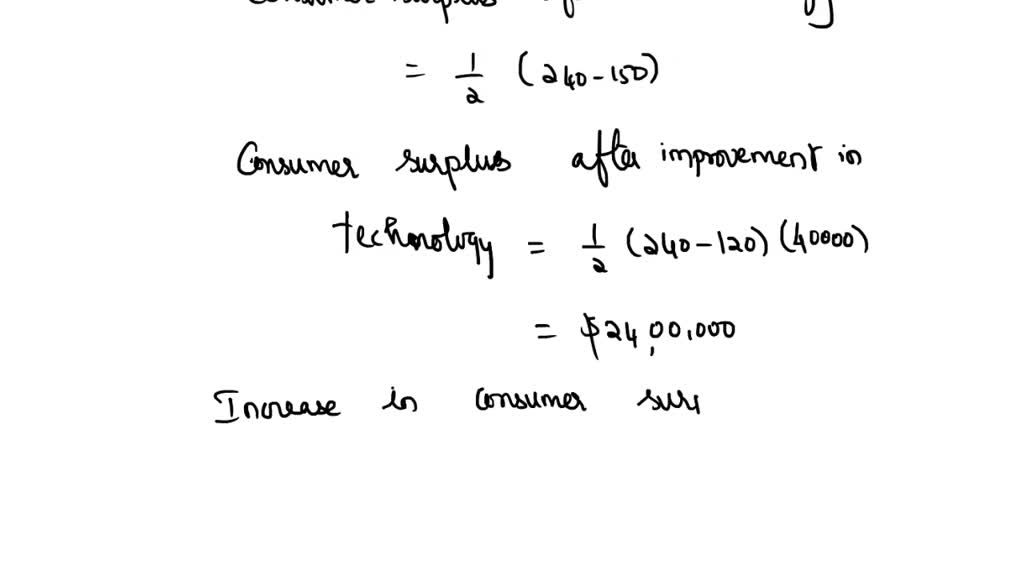 surplus
= 1/2 (240-150)
Consumer surplus after improvement in
technology = 1/2 (240-120) (40000)
= $24,00,000
Increase in consumer sur